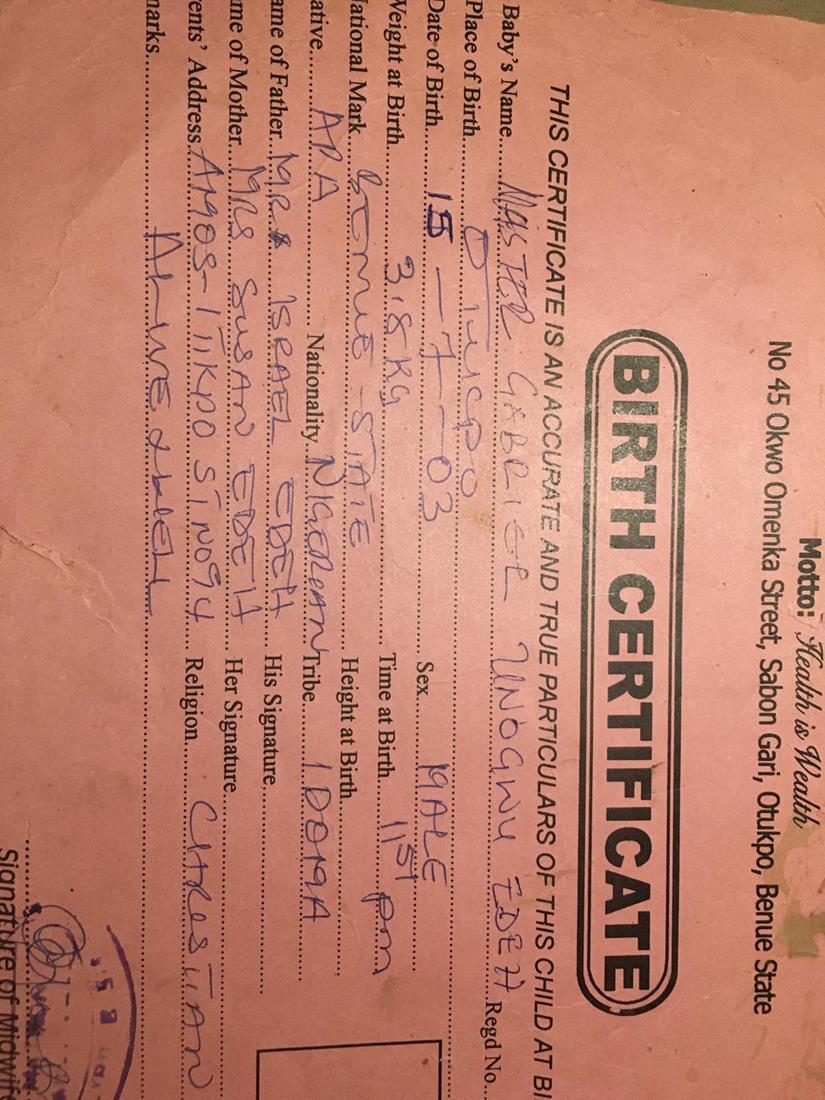 Motto: Health is Wealth
No 45 Okwo Omenka Street, Sabon Gari, Otukpo, Benue State
BIRTH CERTIFICATE
THIS CERTIFICATE IS AN ACCURATE AND TRUE PARTICULARS OF THIS CHILD AT BI
Baby's Name MASTER GABRIEL UNOGWU EDEH Regd No
Place of Birth
Date of Birth 15-7-03 Sex MALE
Weight at Birth 3.8KG Time at Birth 11 51 pm
ational Mark STATE Height at Birth
ative APA Nationality NIGEREAN Tribe IDOMA
ame of Father MR ISRAEL EDEH His Signature
me of Mother MRS SUSAN EDEH Her Signature
ents' Address Religion CHRESTIAN
marks ALIVE & WELL
Signature of Midwif